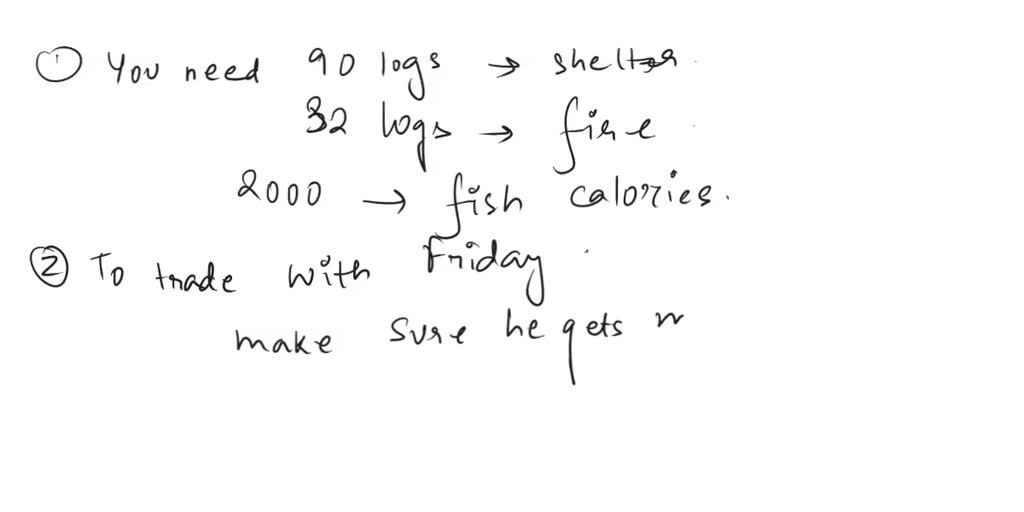 ① You need 90 logs → shelter.
32 logs → fire
2000 → fish calories.
② To trade with Friday
make sure he gets